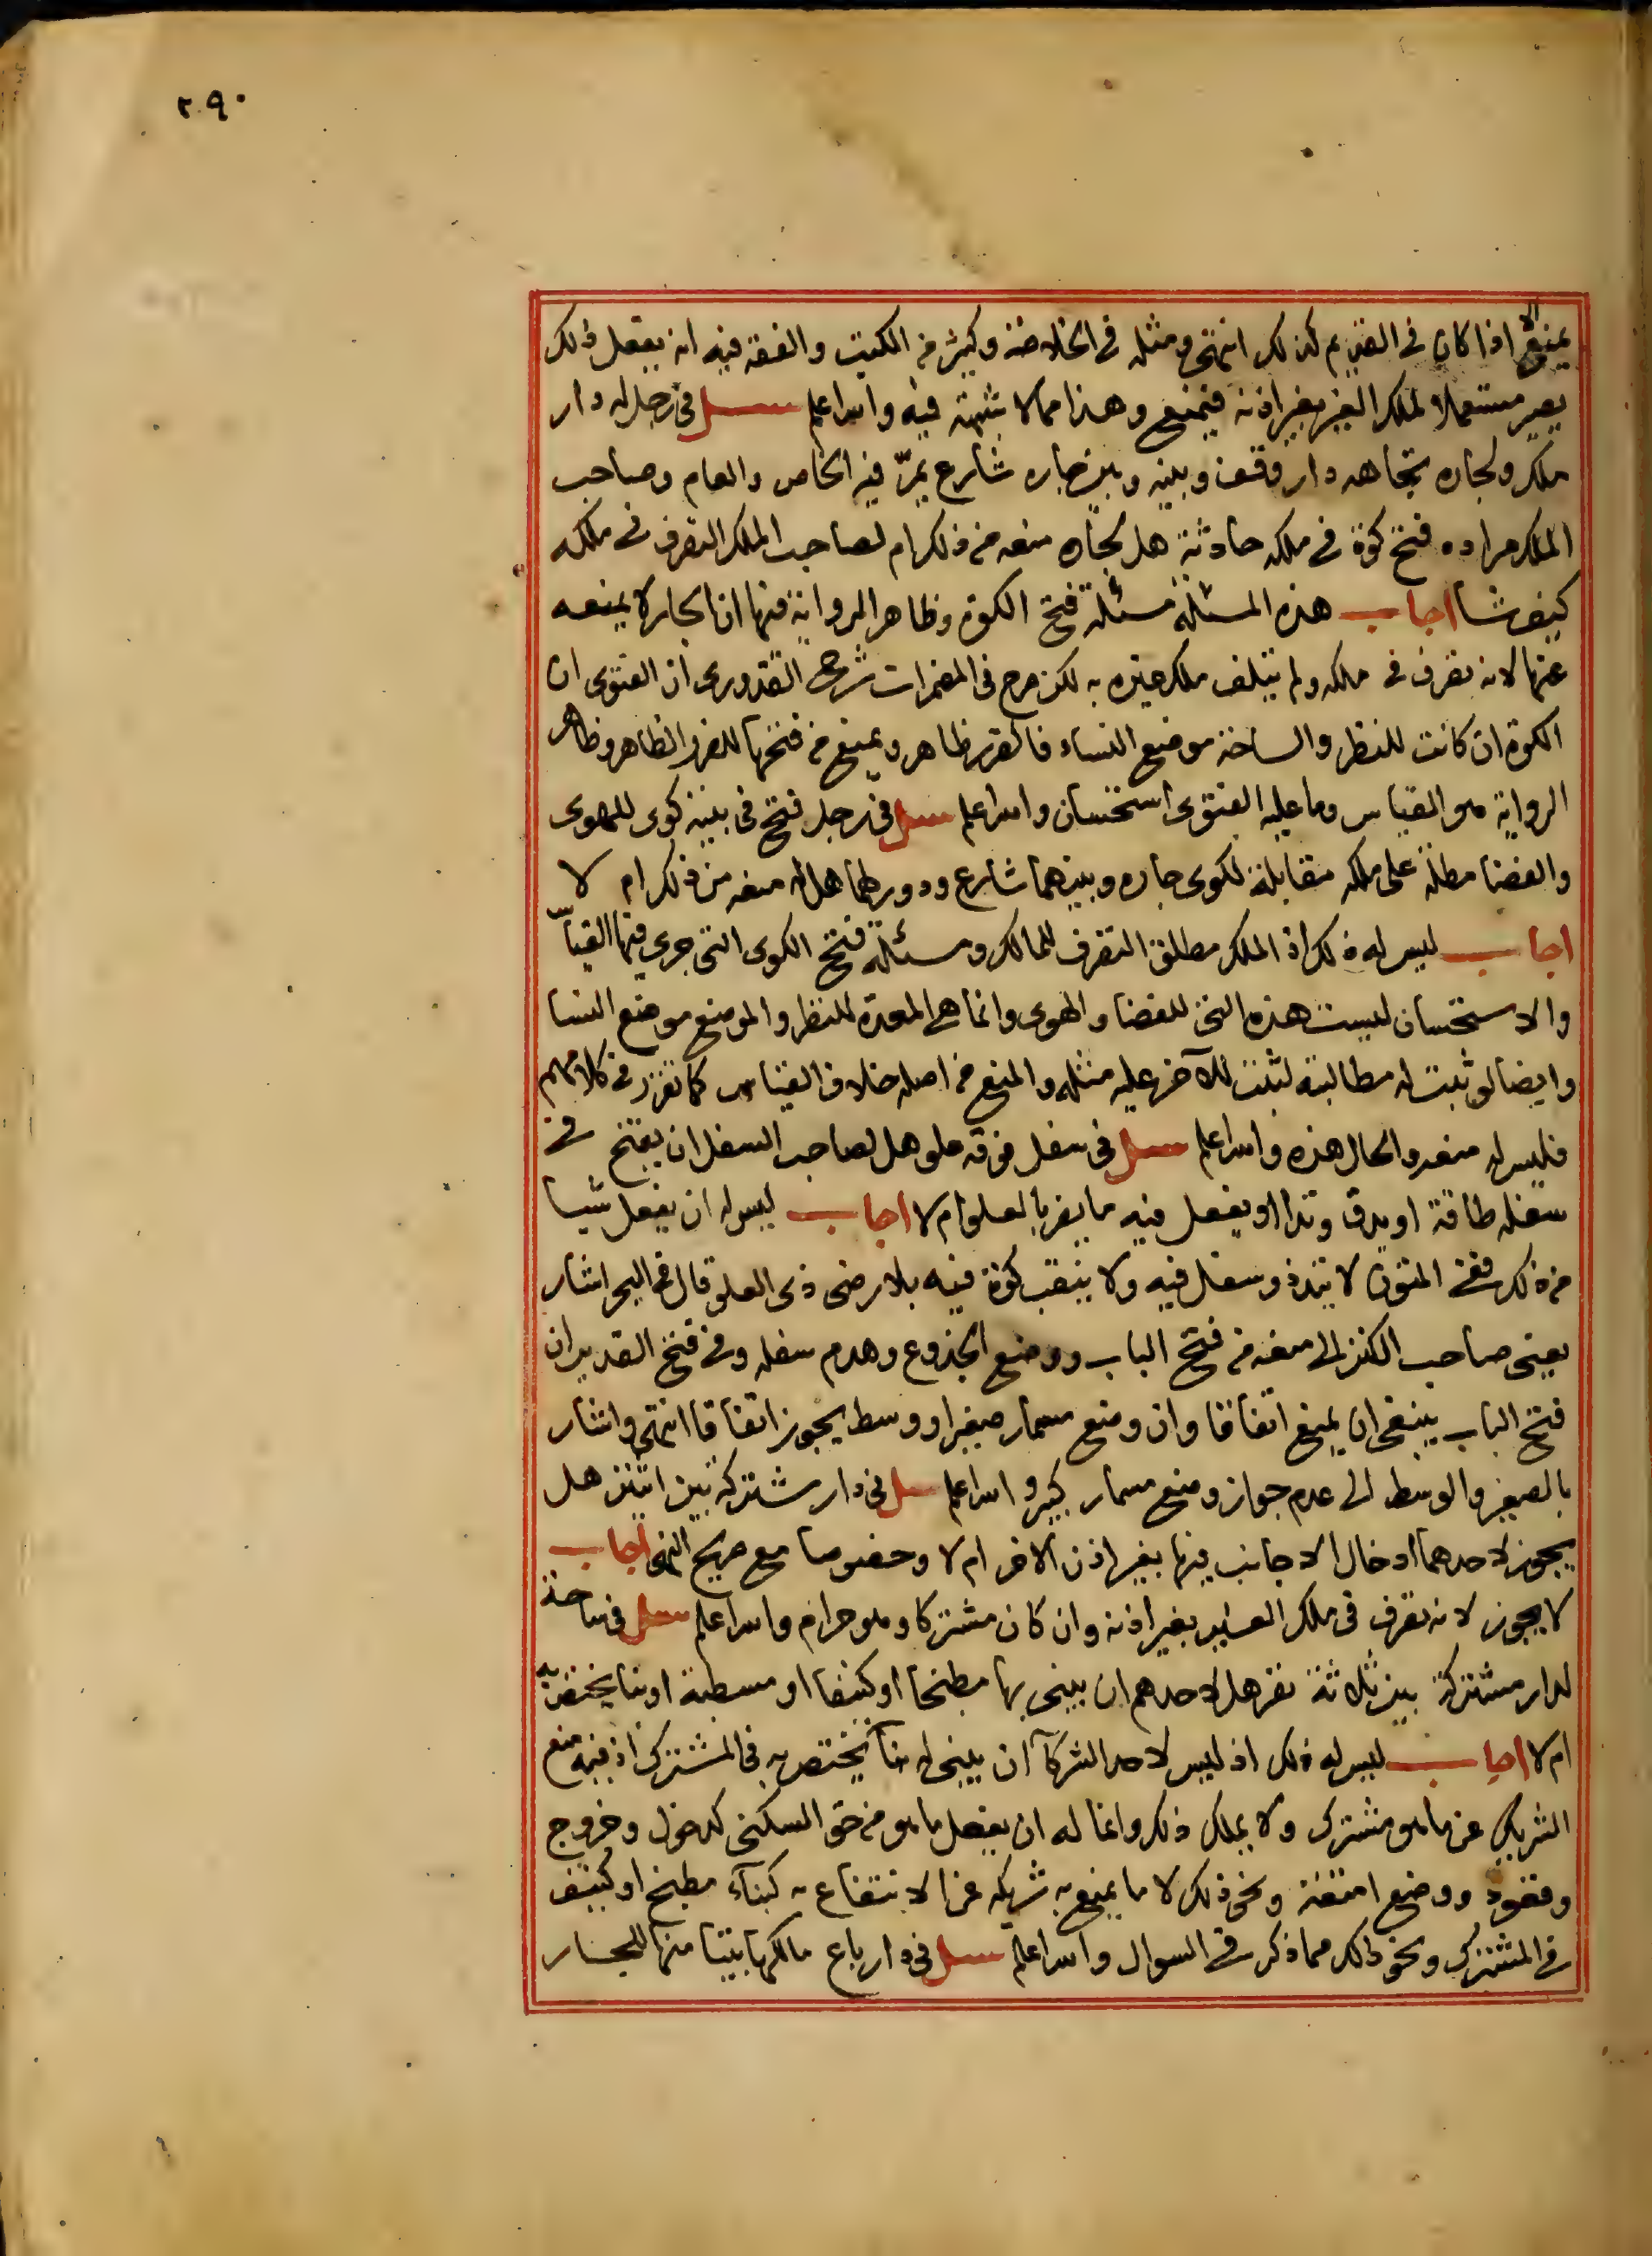 ٢٩٠
يمنع الا اذا كان في القديم كذلك انتهى ومثله في الخلاصة وكثير من الكتب والفقه فيه انه بفعل ذلك
يصير مستعملا لملك الغير بغير اذنه فيمنع وهذا مما لا شبهة فيه والله اعلم سئل في رجل له دار
ملك ولجاره تجاهه دار وقف وبينه وبين جاره شارع يمرّ فيه الخاص والعام وصاحب
الملك مراده فتح كوة في ملكه حادثة هل لجاره منعه من ذلك ام لصاحب الملك التصرف في ملكه
كيف شا اجاب هذه المسئلة مسئلة فتح الكوة وظاهر الرواية فيها ان الجار لا يمنعه
عنها لانه تصرف في ملكه ولم يتلف ملك غيره به لكن صرح في المضمرات شرح القدوري ان الفتوى ان
الكوة ان كانت للنظر والساحة موضع النساء فالضرر ظاهر ويمنع من فتحها للضرر الظاهر وظاهر
الرواية هو القياس وما عليه الفتوى استحسان والله اعلم سئل في رجل فتح في بيته كوى للهوى
والفضا مطلة على ملكه مقابلة لكوى جاره وبينهما شارع ودور لهما هل له منعه من ذلك ام لا
اجاب ليس له ذلك اذ الملك مطلق التصرف للمالك ومسئلة فتح الكوى التي جرى فيها القياس
والاستحسان ليست هذه التي للفضا والهوى وانما هي المعدة للنظر والموضع موضع النسا
وايضا لو ثبت له مطالبته لثبت للآخر عليه مثله والمنع من اصله خلاف القياس كما تقرر في كلامهم
فليس له منعه والحال هذه والله اعلم سئل في سفل فوقه علو هل لصاحب السفل ان يفتح في
سفله طاقة او يدق وتدا او يفعل فيه ما يضر بالعلو ام لا اجاب ليس له ان يفعل شيا
من ذلك ففي المتون لا يتد ذو سفل فيه ولا ينقب كوة فيه بلا رضى ذي العلو قال في البحر اشار
يعني صاحب الكنز الى منعه من فتح الباب ووضع الجذوع وهدم سفله وفي فتح القدير ان
فتح الباب ينبغي ان يمنع اتفاقا وان وضع مسمار صغير او وسط يجوز اتفاقا انتهى واشار
بالصغير والوسط الى عدم جواز وضع مسمار كبير والله اعلم سئل في دار مشتركة بين اثنين هل
يجوز لاحدهما ادخال الاجانب فيها بغير اذن الاخر ام لا وخصوصا مع صريح النهى اجاب
لا يجوز لانه تصرف في ملك الغير بغير اذنه وان كان مشتركا وهو حرام والله اعلم سئل في ساحة
لدار مشتركة بين ثلاثة نفر هل لاحدهم ان يبني بها مطبخا او كنيفا او مسطبة او بنا يختص به
ام لا اجاب ليس له ذلك اذ ليس لاحد الشركآ ان يبني له بنآ يختص به في المشترك اذ فيه منع
الشريك عن ما هو مشترك ولا يملك ذلك وانما له ان يفعل ما هو من حق السكنى كدخول وخروج
وقعود ووضع امتعة ونحو ذلك لا ما يمنع به شريكه عن الانتفاع به كبنآء مطبخ او كنيف
في المشترك ونحو ذلك مما ذكر في السوال والله اعلم سئل في دار باع مالكها بيتا منها للجار